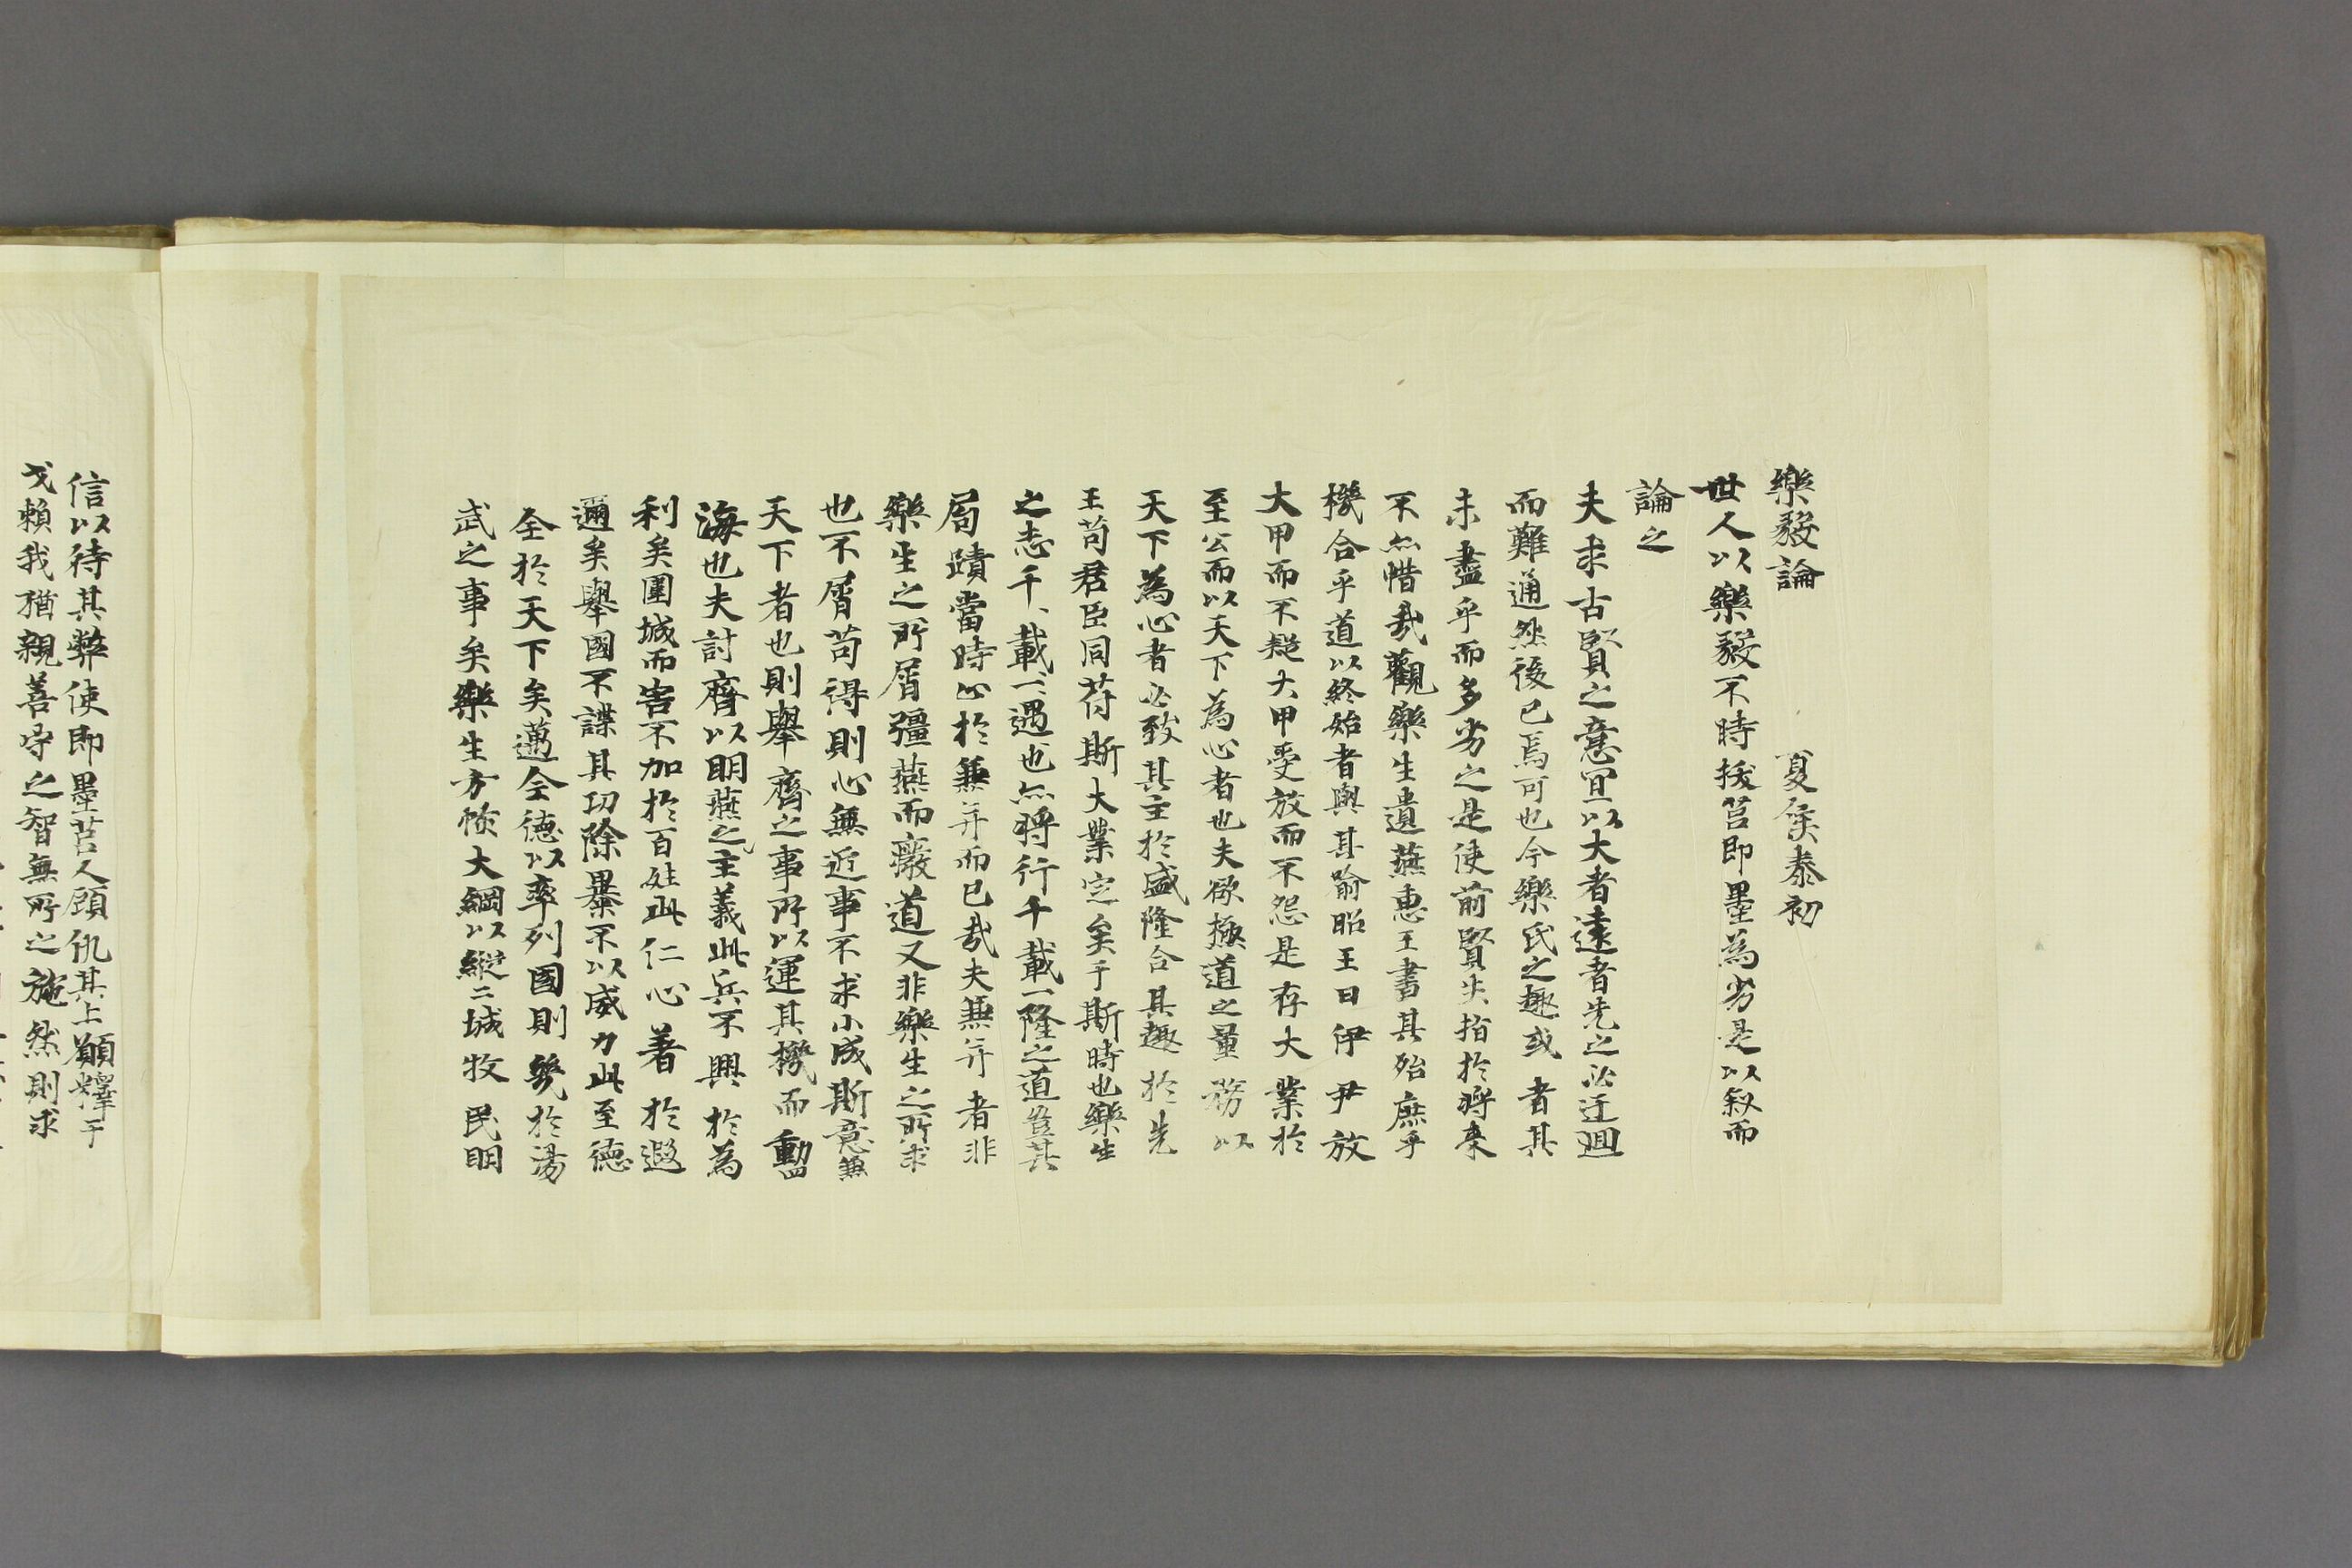 樂毅論 夏侯泰初
世人以樂毅不時拔莒即墨為劣是以敘而
論之
夫求古賢之意宜以大者遠者先之必迂迴
而難通然後已焉可也今樂氏之趣或者其
未盡乎而多劣之是使前賢失指於將來
不亦惜哉觀樂生遺燕惠王書其殆庶乎
機合乎道以終始者與其喻昭王曰伊尹放
大甲而不疑大甲受放而不怨是存大業於
至公而以天下為心者也夫欲極道之量務以
天下為心者必致其主於盛隆合其趣於先
王苟君臣同苻斯大業定矣于斯時也樂生
之志千載一遇也亦將行千載一隆之道豈其
局蹟當時心於兼并而已哉夫兼并者非
樂生之所屑彊燕而廢道又非樂生之所求
也不屑苟得則心無近事不求小成斯意兼
天下者也則舉齊之事所以運其機而動四
海也夫討齊以明燕之主義此兵不興於為
利矣圍城而害不加於百姓此仁心著於遐
邇矣舉國不謀其功除暴不以威力此至德
全於天下矣邁全德以率列國則幾於湯
武之事矣樂生方恢大綱以縱二城牧民明
信以待其弊使即墨莒人顧仇其上願釋干
戈賴我猶親善守之智無所之施然則求